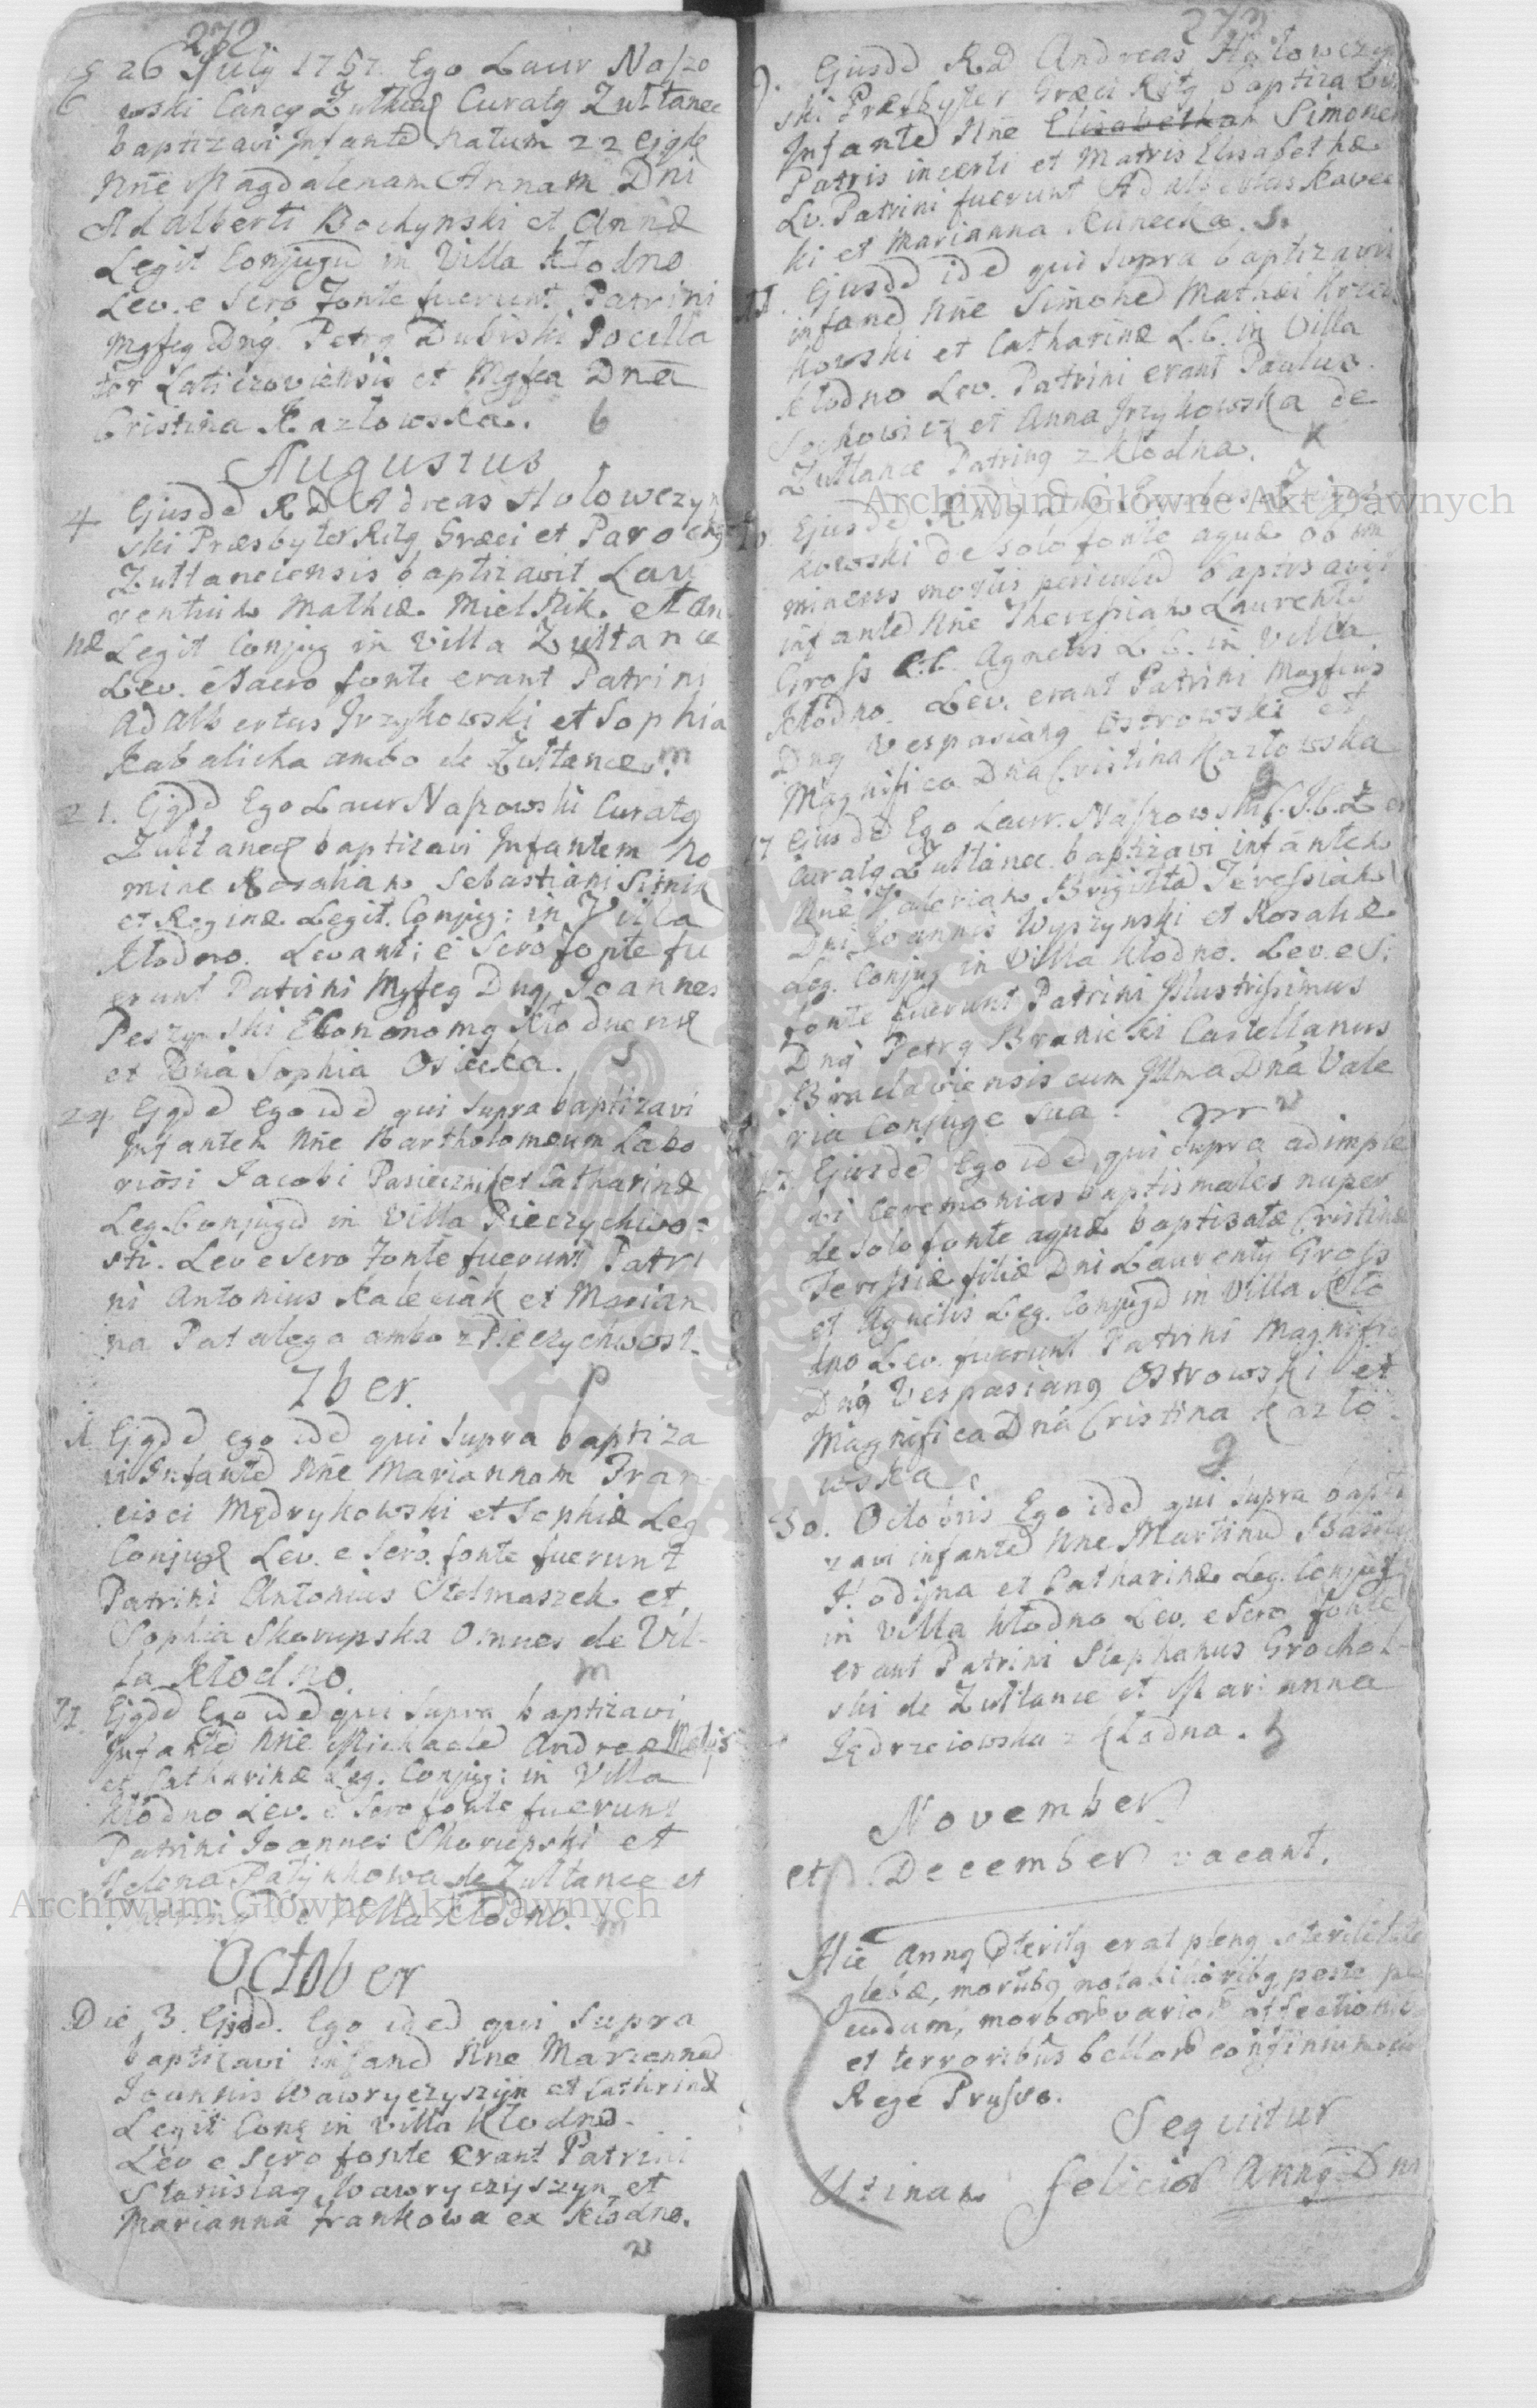 232
26 July 1757. Ego Laur Naszo
wski Cancg Zułkieẽ Curatg Zułtanec
baptizavi Infantē natum 22 ejgdē
Nñe Magdalenam Annam Dni
Adalberti Bochynski et Annæ
Legit Conjugū in Villa Kłodno
Lev. e Scro Fonte fuerunt Patrini
Mgfcg Dng Petrg Dubiski Pocilla
tor Laticzoviensis et Mgfca Dnã
Cristina Kazłowska. b
Augustus
4 Ejusdē RD Adreas Hołowczyn
ski Præsbyter Ritg Græci et Parochg
Zułtanciensis baptizavit Lau
rentium Mathiæ Mielnik et An
næ Legit Conjug in Villa Zułtance
Lev. e Sacro fonte erant Patrini
Adalbertus Jrzykowski et Sophia
Kabalicha ambo de Zułtance. m
21. Ejgdē Ego Laur Naszowski Curatg
Zułtanec baptizavi Infantem No
mine Rosaliam Sebastiani Sitnik
et Reginæ Legit. Conjug: in Villa
Kłodno. Levant: e Scro fonte fu
erunt Patrini Mgfcg Dng Joannes
Peszynski Ekononomg Kłodnens
et Dna Sophia Osiecka. S
24 Ejgdē Ego idē qui Supra baptizavi
Infantem Nñe Bartholomæum Labo
riosi Jacobi Pasiecznik et Catharinæ
Leg. Conjugū in Villa Pieczychwo=
sti. Lev e Scro Fonte fuerunt Patri
ni Antonius Kaleciak et Marian
na Patalega ambo z Pieczychwost.
7ber. p
Ejgdē ego idē qui Supra baptiza
vi Infantē Nñe Mariannam Fran
cisci Mędrykowski et Sophiæ Leg
Conjug Lev. e Scro. fonte fuerunt
Patrini Antonius Stelmaszek et
Sophia Skorupska Omnes de Vil-
la Kłodno. m
Ejgdē Ego idē qui Supra baptizavi
Infantē Nñe Michaelē Andreæ
et Catharinæ Leg. Conjug: in Villa
Kłodno Lev. e Scro fonte fuerunt
Patrini Joannes Skorupski et
Helena Patynkowa de Zułtance et
de Villa Kłodno. m
October
Die 3. Ejsdē. Ego idē qui Supra
baptizavi infanē Nñe Mariannā
Joannis Wawryczyszyn et Cathrinæ
Legit Conj in Villa Kłodno.
Lev e Scro fonte Erant Patrini
Stanislag Wawryczyszyn et
Marianna frankowa ex Kłodno.
v
Ejusdē RD Andreas Hołowczyn
ski Præsbyter Græci Ritg baptizavit
Infantē Nñe Elisabetham Simonem
Patris incerti et Matris Elisabethæ
Lv. Patrini fuerunt Adalbertus Kavec
ki et Marianna Kunecka. S.
Ejusdē idē qui Supra baptizavit
infanē Nñe Simonē Mathæi Krzciu
kowski et Catharinæ L.C. in Villa
Kłodno Lev. Patrini erant Paulus
Sochowicz et Anna Jrzykowska de
Zułtance Patring z Kłodna. K
Ejusdē Rndg
kowski de solo fonte aquæ ob im
minens mortis periculū baptisavit
infantē Nñe Theressiam Laurenti
Gross Agnetis L C. in Villa
Kłodno. Lev. erant Patrini Magfcus
Dng Vespasiang Ostrowski et
Magnifica Dña Cristina Kazłowska
g
17 Ejusdē Ego Laur. Naszowski
Curatg Zułtanec. baptizavi infantem
Nñe Valeriam Brigittā Teressiam
Dni Joannis Wyszynski et Rosaliæ
Leg. Conjug in Villa Kłodno. Lev. e S:
fonte fuerunt Patrini Jllustrissimus
Dng Petrg Branicki Castellanus
Braclaviensis cum Jllma Dña Vale
ria Conjuge sua. v
17 Ejusdē Ego idē, qui Supra adimple
vi Ceremonias baptismales nuper
de solo fonte aquæ baptisatæ Cristinæ
Teressiæ filiæ Dni Laurenty Gross
et Agnetis Leg. Conjugū in Villa Kło
dno Lev. fuerunt Patrini Magnific
Dng Vespasiang Ostrowski et
Magnifica Dña Cristina Kazło
wska. g
30. Octobris Ego idē qui Supra bapti
zavi infantē Nñe Martinū
Hodyna et Catharinæ Leg. Conjug
in Villa Kłodno Lev. e Scro fonte
erant Patrini Stephanus Grochol-
ski de Zułtance et Marianna
Jędrzeiowska z Kłodna. h
November
et December vacant.
Hic Anng Pteritg erat pleng sterilitate
glebæ, mortubg notabilioribg, peste pe
cudum, morbor varior affectionib
et terroribus bellor
Rege Prusso.
Sequitur
Utinam felicior Anng Dni
Archiwum Główne Akt Dawnych
Archiwum Główne Akt Dawnych